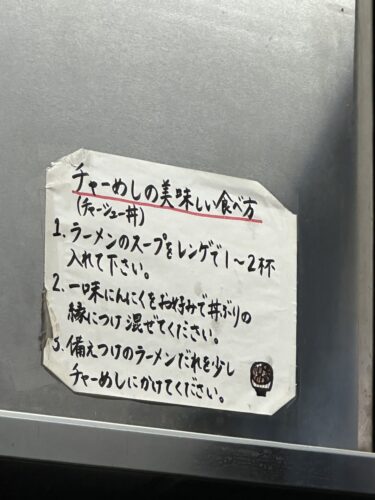 チャーめしの美味しい食べ方
(チャーシュー丼)
1. ラーメンのスープをレンゲで1〜2杯
入れて下さい。
2. 一味にんにくをお好みで丼ぶりの
縁につけ混ぜてください。
3. 備えつけのラーメンだれを少し
チャーめしにかけてください。